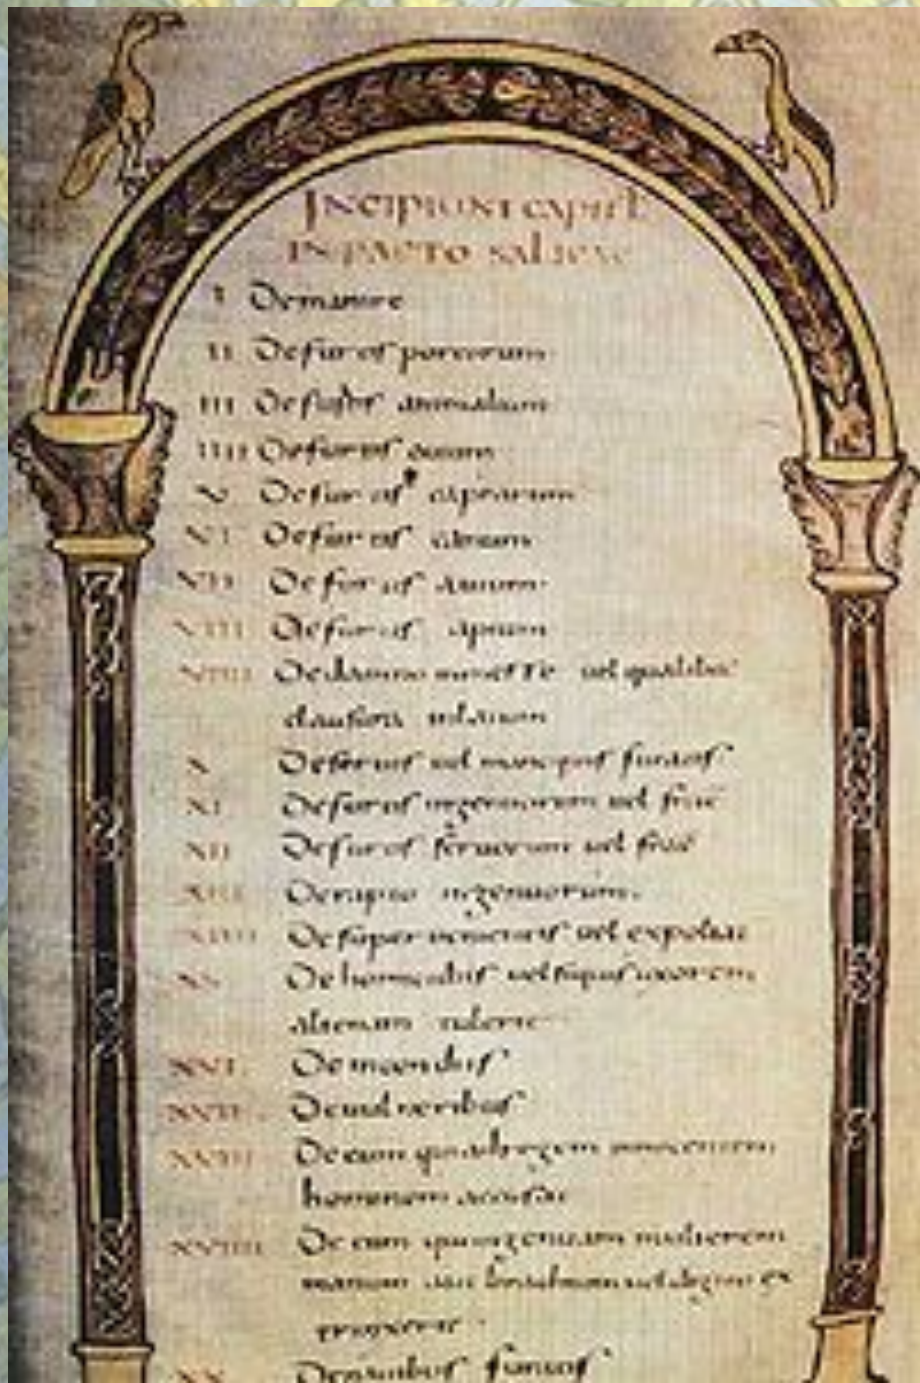 INCIPIUNT CAPITL
IN PACTO SALICAE
I De mannire
II De furtis porcorum
III De furtis animalium
IIII De furtis ouium
V De furtis caprarum
VI De furtis canum
VII De furtis auium
VIII De furtis apium
VIIII De damno in messe uel qualibet
clausura
X De seruis uel mancipiis furatis
XI De furtis ingenuorum uel frac
XII De furtis seruorum uel frac
XIII De rapto ingenuorum
XIIII De superuenientis uel expoliat
XV De homicidiis uel si quis uxorem
alienam tulerit
XVI De incendiis
XVII De uulneribus
XVIII De eum qui ad regem innocentem
hominem accusat
XVIIII De eum qui ingenuam mulierem
manum aut brachium uel digitum ex
XX De nauibus furatis